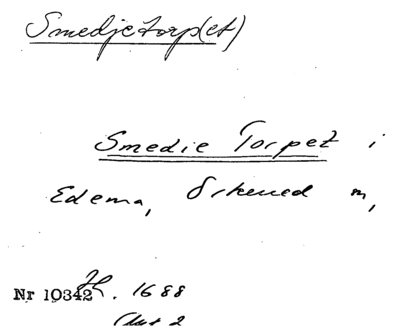 Smedjetorp(et)
Smedie Torpet i
Edema, Örkened m,
Nr 10342 . 1688
2